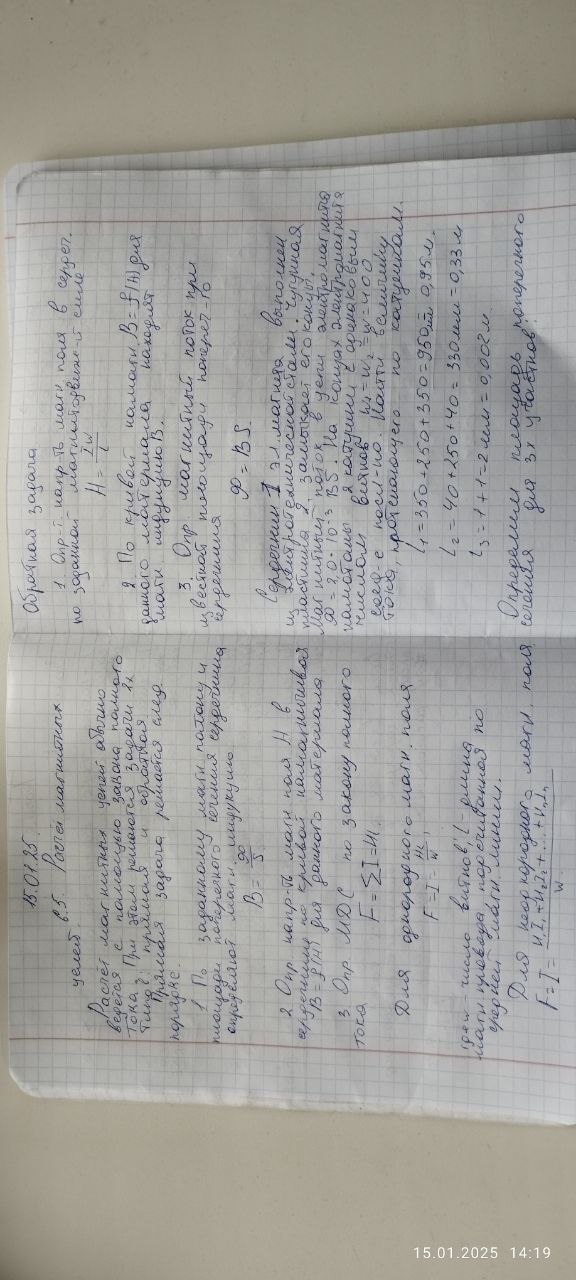 15.01.25.
в.5. Расчёт магнитных
цепей
Расчёт магнитных цепей обычно
ведётся с помощью закона полного
тока. При этом решаются задачи 2х
типов: прямая и обратная
Прямая задача решается след.
порядке.
1. По заданному магн. потоку и
площади поперечного сечения сердечника
определяют магн. индукцию
B = Ф/S
2. Опр. напр-ть магн. поля H в
сердечнике по кривой намагничивая
B = f(H) для данного материала
3. Опр. МДС по закону полного
тока
F = ΣI = Hl.
Для однородного магн. поля
F = I = Hl/w,
где w - число витков, l - длина
магн. провода, посчитанная по
средней магн. линии.
Для неоднородного магн. поля
F = I = H₁l₁ + H₂l₂ + ... + Hₙlₙ / w
Обратная задача
1. Опр-т напр-ть магн. поля в сердеч.
по заданной магнитодвиж-й силе
H = I·w/l
2. По кривой намагн. B = f(H) для
данного материала находят
магн. индукцию B.
3. Опр. магнитный поток при
известной площади попереч-го
сердечника
Ф = BS
Сердечник 1 эл. магнита выполнен
из электротехнической стали. Чугунная
пластина 2 замыкает его концы.
Магнитный поток в цепи электромагнита
Ф = 2,0·10⁻³ Вб. На концах электромагнита
намотаны 2 катушки с одинаковым
числом витков w₁ = w₂ = w = 400
соед. с посл-но. Найти величину
тока, протекающего по катушкам.
l₁ = 350 + 250 + 350 = 950 мм = 0,95 м.
l₂ = 40 + 250 + 40 = 330 мм = 0,33 м
l₃ = 1 + 1 = 2 мм = 0,002 м
Определим площадь поперечного
сечения для 3х участков:
15.01.2025 14:19